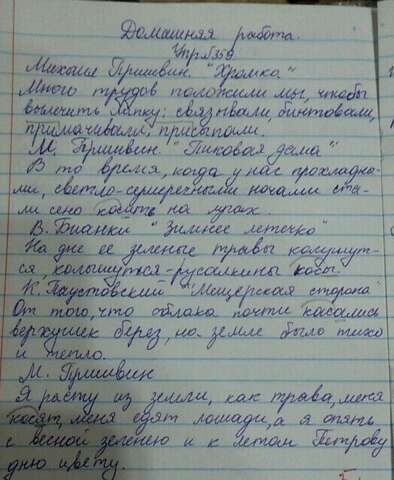 Домашняя работа.
Упр№359
Михаил Пришвин. "Хромка"
Много трудов положили мы, чтобы
вылечить лапку: связывали, бинтовали,
примачивали, присыпали.
М. Пришвин "Пиковая дама"
В то время, когда у нас прохладны-
ми, светло-серебрян ночами ста-
ли сено косить на лугах.
В. Бианки " Зимнее летечко"
На дне ее зеленые травы колышут-
ся, колышуться-русалкины косы.
К. Паустовский "Мещерская сторона"
От того, что облака почти касались
верхушек берез, на земле было тихо
и тепло.
М. Пришвин
Я расту из земли, как трава, меня
косят, меня едят лошади, а я опять
с весной зеленею и к летам Петрову
дню цвету.